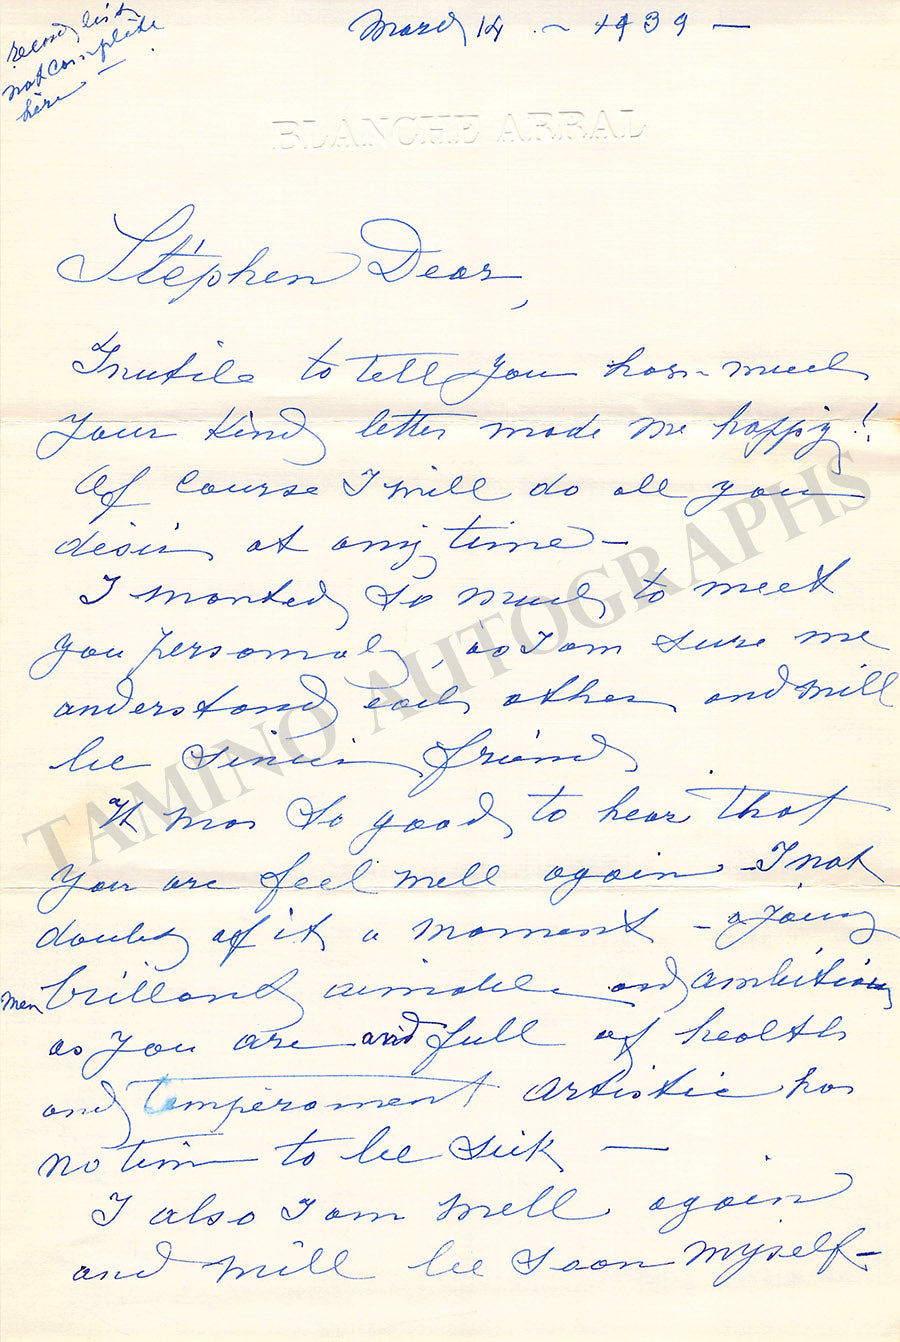 record list
not complete
here —
March 14 - 1939 —
BLANCHE ARRAL
Stéphen Dear,
Inutile to tell you how much
your kind letter made me happy!
Of course I will do all you
desir at any time —
I wanted so much to meet
you personal, as I am sure we
understand each other and will
be sincer friend
It was so good to hear that
you are feel well again - I not
doubt of it a moment - a young
men brillant aimable and ambitious
as you are and full of health
and temperament artistic has
no time to be sick —
I also I am well again
and will be soon myself —
TAMINO AUTOGRAPHS